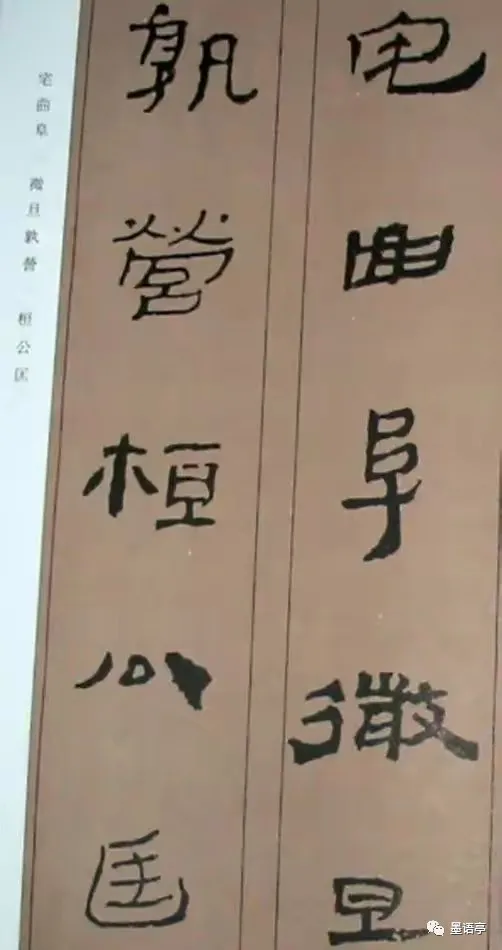 宅曲阜微旦
孰營桓公匡
宅曲阜 微旦孰營 桓公匡
墨语亭